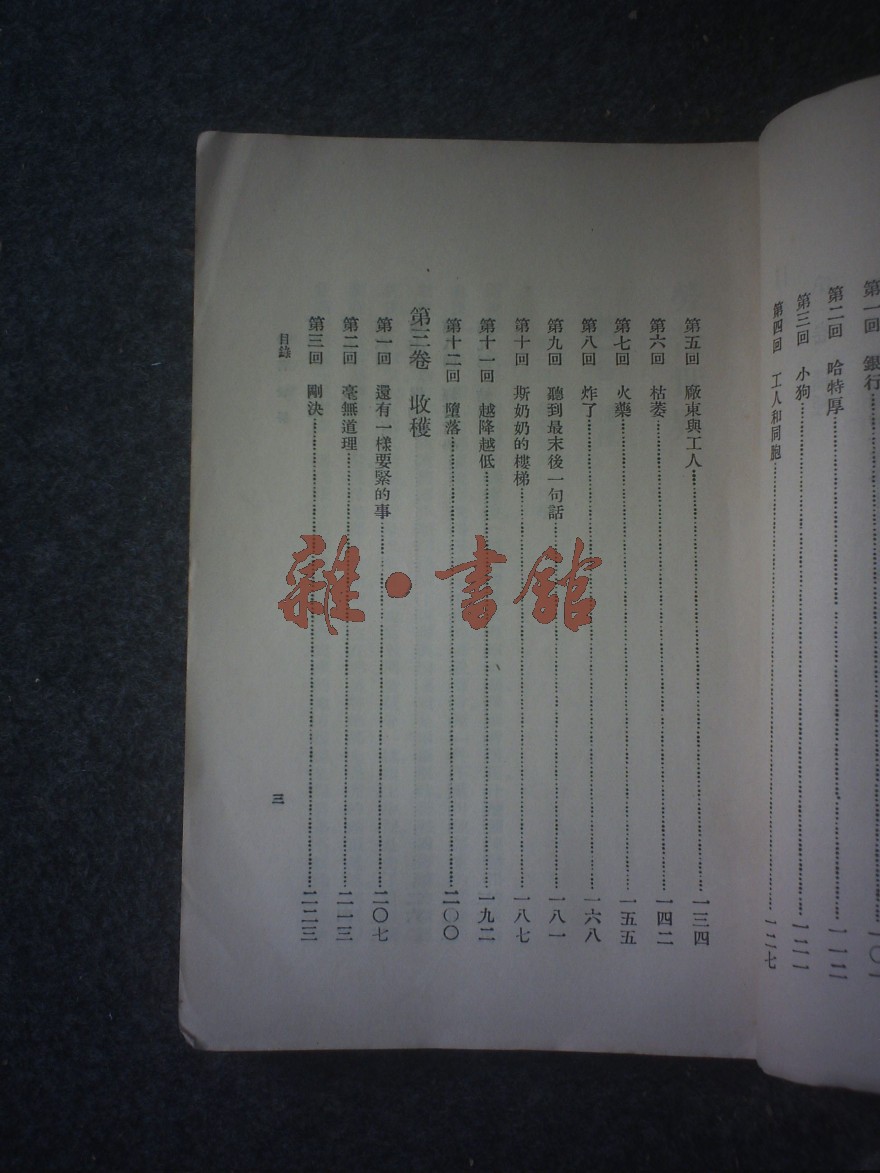 第一回 銀行……一〇一
第二回 哈特厚……一一二
第三回 小狗……一二一
第四回 工人和同胞……一二七
第五回 廠東與工人……一三四
第六回 枯萎……一四二
第七回 火藥……一五五
第八回 炸了……一六八
第九回 聽到最末後一句話……一八一
第十回 斯奶奶的樓梯……一八七
第十一回 越降越低……一九二
第十二回 墮落……二〇〇
第三卷 收穫
第一回 還有一樣要緊的事……二〇七
第二回 毫無道理……二一三
第三回 剛決……二二三
目錄
三
雜·書館